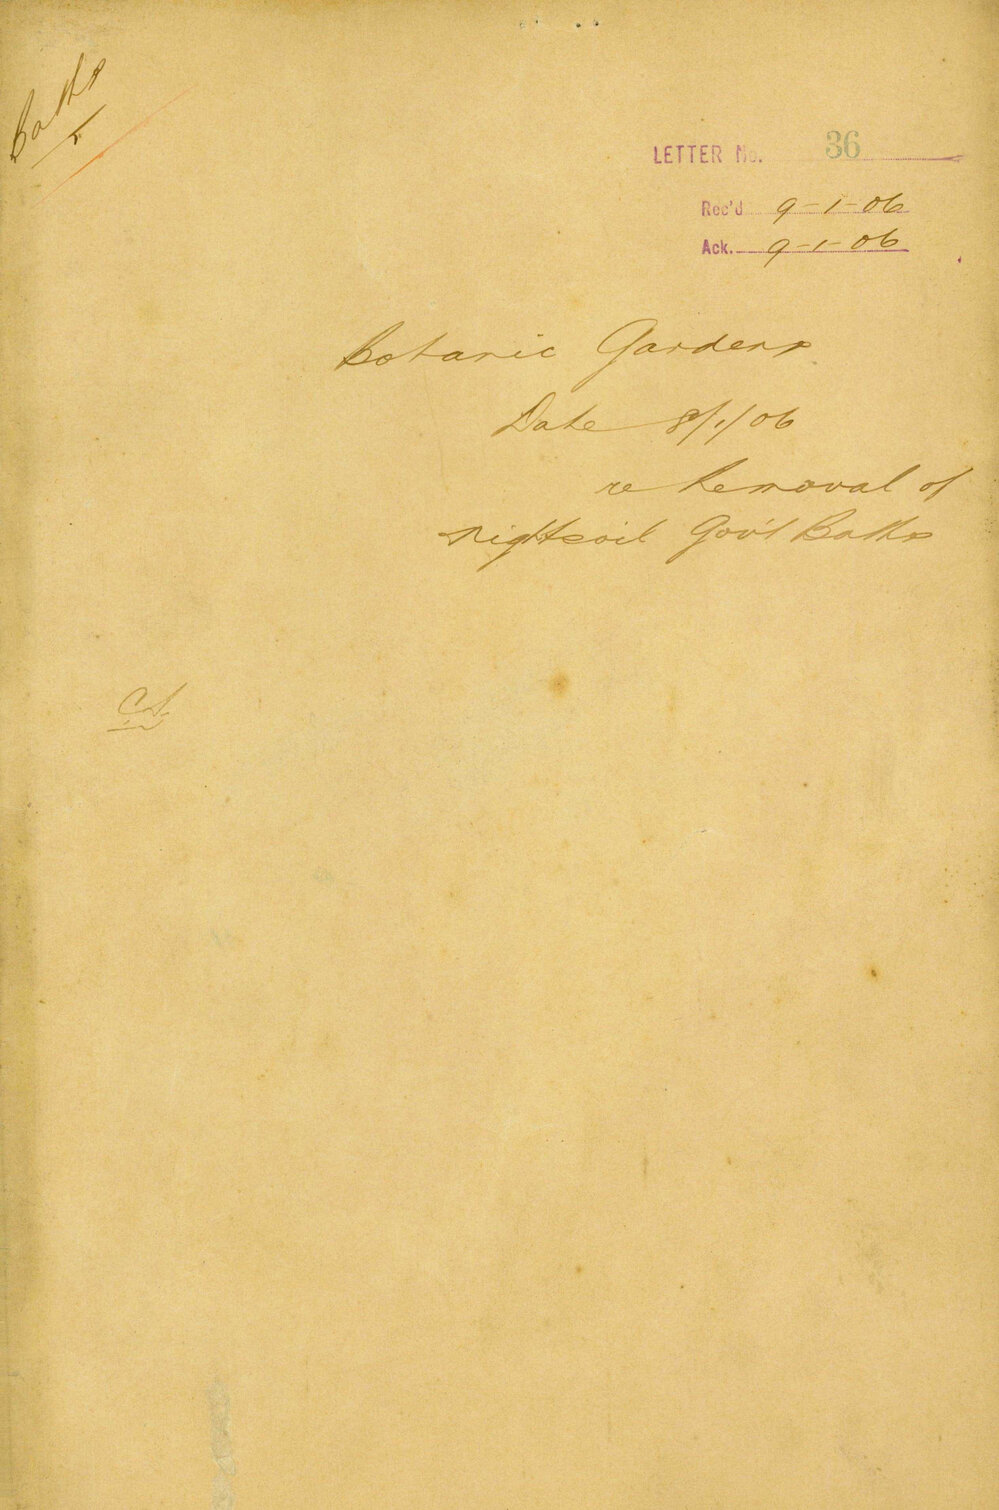 Baths
LETTER No. 36
Rec'd 9-1-06
Ack. 9-1-06
Botanic Gardens
Date 8/1/06
re Removal of
nightsoil Gov't Baths